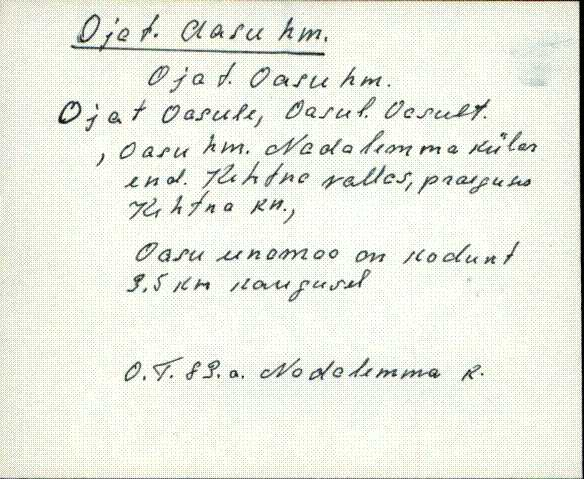 Ojat. Aasu hm.
Ojat. Oasu hm.
Ojat Oasule, Oasul. Oasult.
, Oasu hm. Nadalemma külas
end. Kehtna vallas, praeguse
Kehtna kn.,
Oasu unamaa on kodunt
3,5 km kaugusel
O.T. 89.a. Nadalemma k.